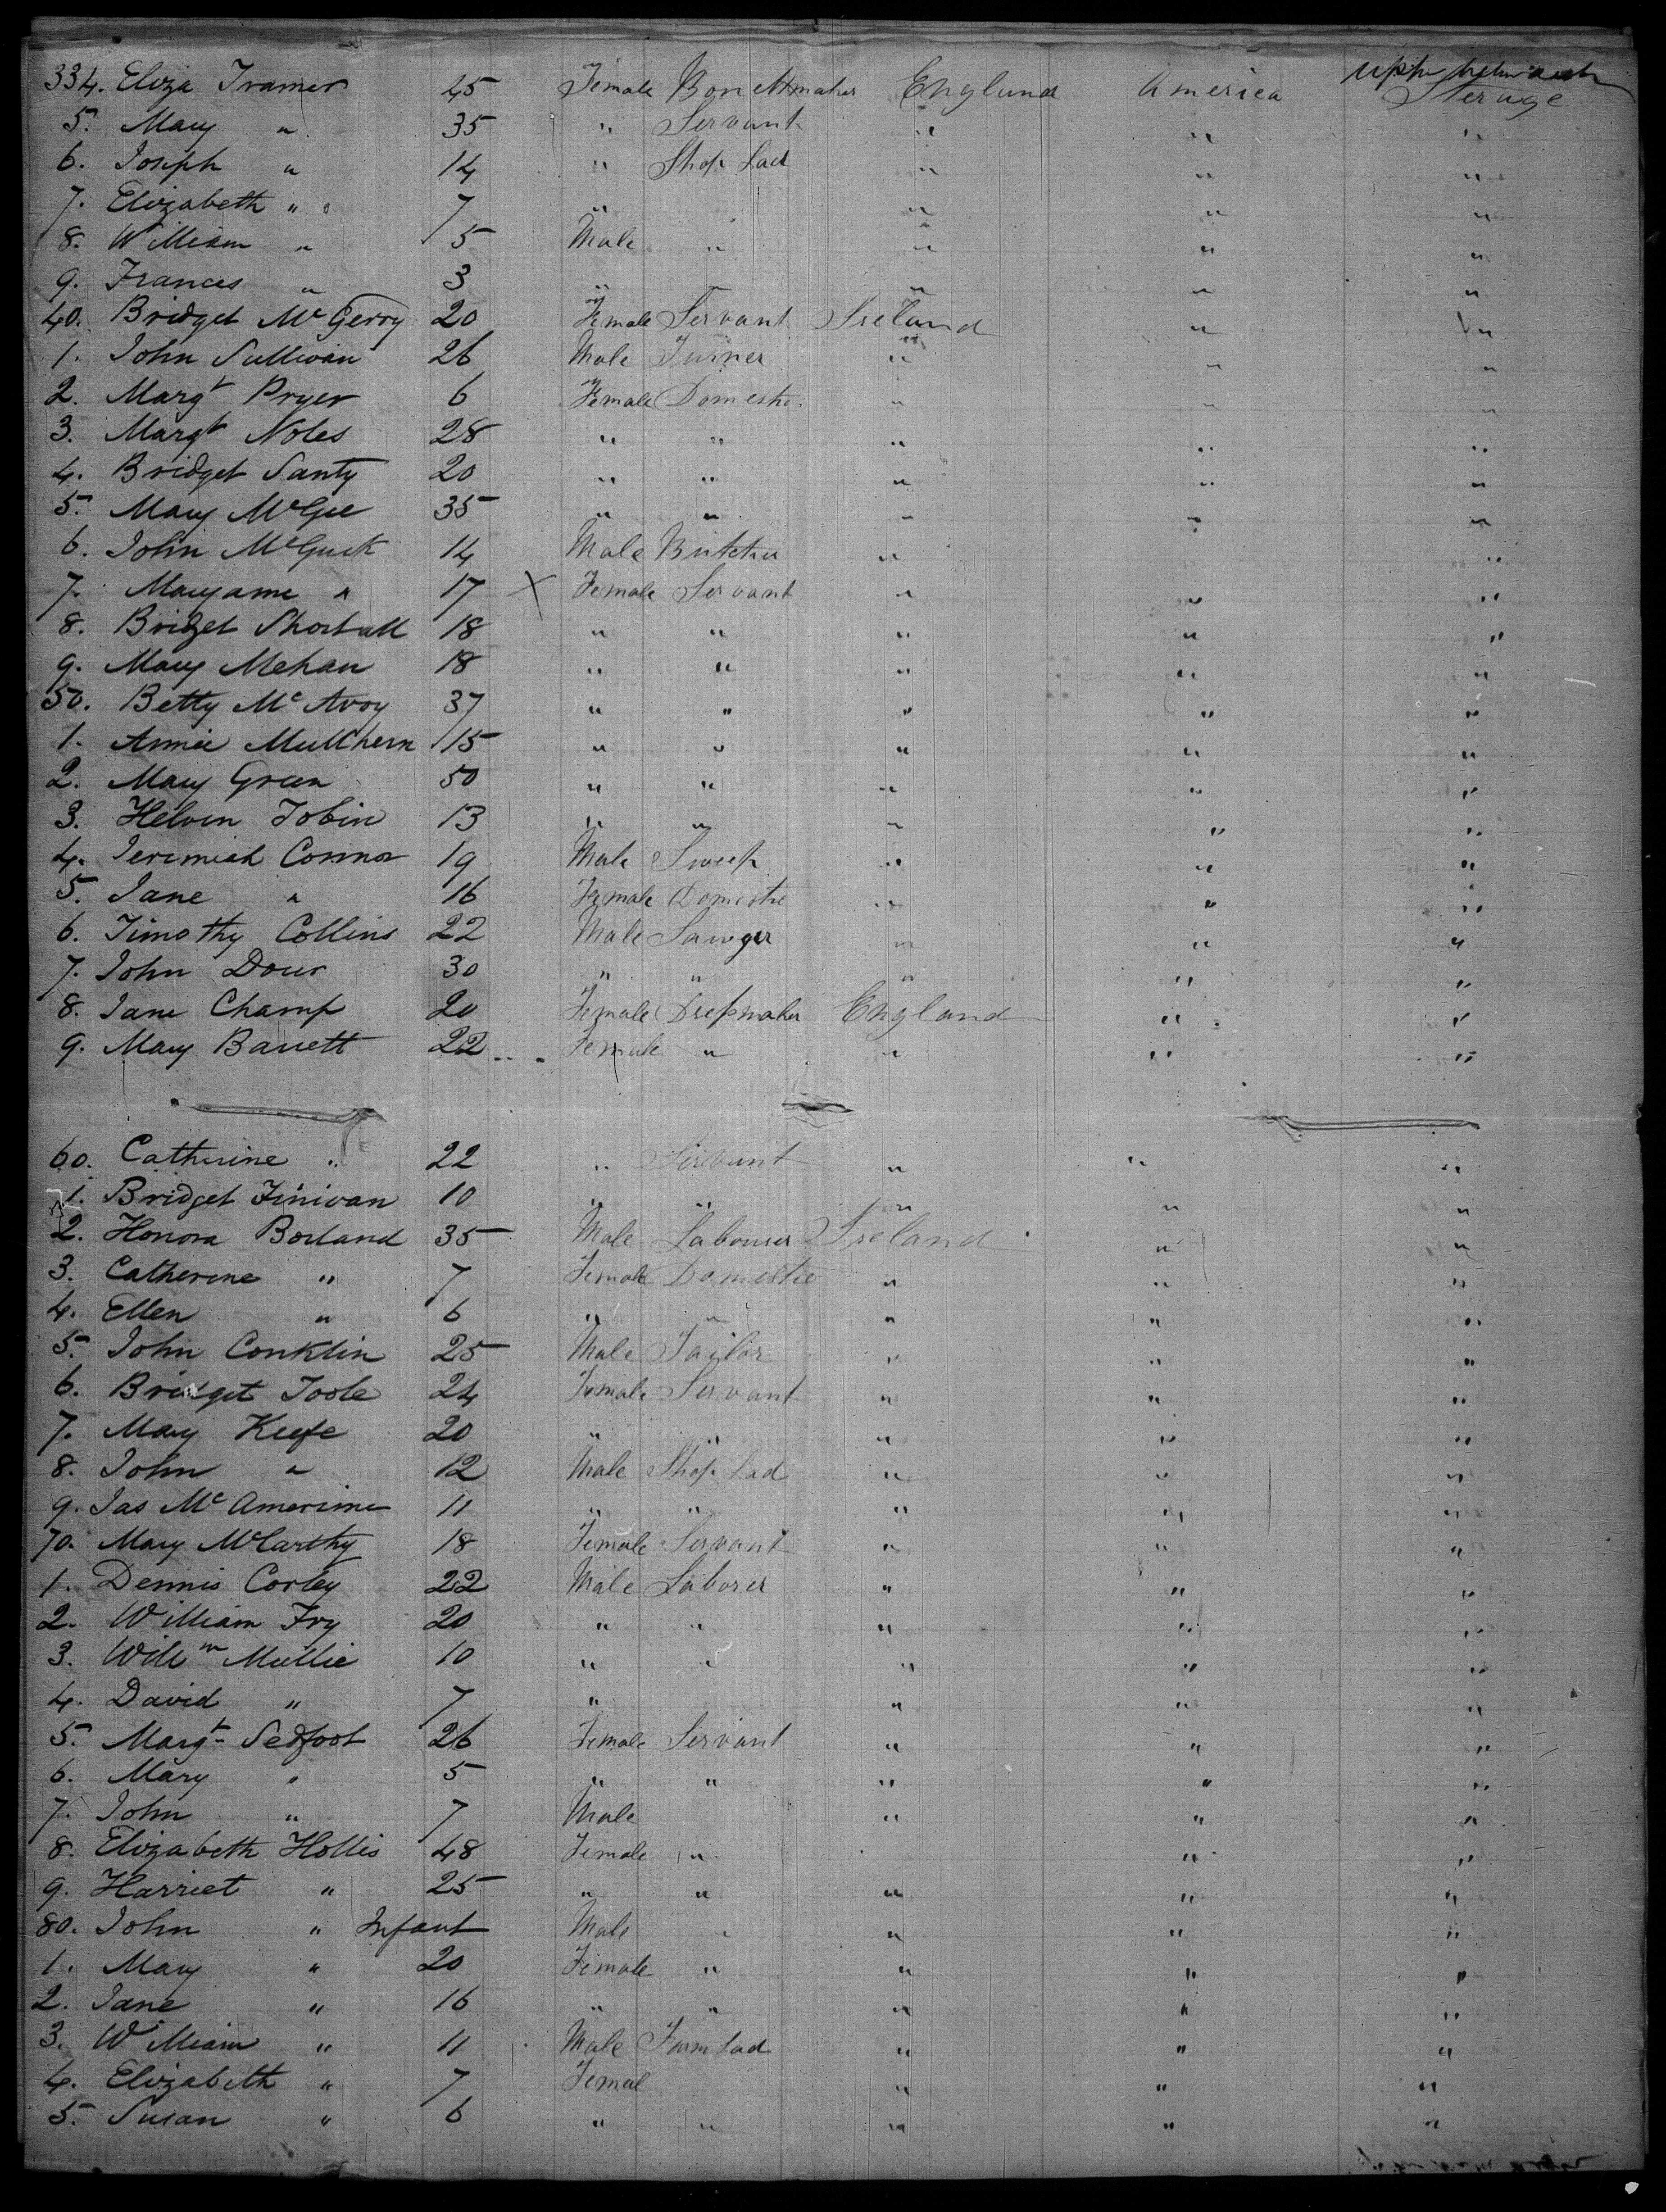 334. Eliza Tramer 45 Female Bonnetmaker England America Sterage
5. Mary " 35 " Servant " " "
6. Joseph " 14 " Shop Lad " " "
7. Elizabeth " 7 " " " "
8. William " 5 Male " " " "
9. Frances " 3 " " " "
40. Bridget McGerry 20 Female Servant Ireland " "
1. John Sullivan 26 Male Turner " " "
2. Margt Pryer 6 Female Domestic " " "
3. Margt Noles 28 " " " " "
4. Bridget Santy 20 " " " " "
5. Mary McGee 35 " " " " "
6. John McGurk 14 Male Butcher " "
7. Maryann " 17 X Female Servant " " "
8. Bridget Shortall 18 " " " " "
9. Mary Mehan 18 " " " " "
50. Betty McAvoy 37 " " " " "
1. Annie Mulhern 15 " " " " "
2. Mary Green 50 " " " " "
3. Tobin 13 " " " " "
4. Jeremiah Connor 19 Male Sweep " " "
5. Jane " 16 Female Domestic " " "
6. Timothy Collins 22 Male Sawyer " " "
7. John Dour 30 " " " " "
8. Jane Champ 20 Female Dressmaker England " "
9. Mary Barrett 22 Female " " " "
60. Catherine " 22 " Servant " " "
1. Bridget Finivan 10 " " " " "
2. Honora Borland 35 Male Labourer Ireland " "
3. Catherine " 7 Female Domestic " " "
4. Ellen " 6 " " " " "
5. John Conklin 25 Male Tailor " " "
6. Bridget Toole 24 Female Servant " " "
7. Mary Keefe 20 " " " " "
8. John " 12 Male Shop Lad " " "
9. Jas 11 " " " " "
70. Mary McCarthy 18 Female Servant " " "
1. Dennis Corley 22 Male Laborer " " "
2. William Fry 20 " " " " "
3. Willm Mullie 10 " " " " "
4. David " 7 " " " "
5. Margt Sedfoot 26 Female Servant " " "
6. Mary " 5 " " " " "
7. John " 7 Male " " "
8. Elizabeth Hollis 48 Female " " "
9. Harriet " 25 " " " " "
80. John " Infant Male " " " "
1. Mary " 20 Female " " " "
2. Jane " 16 " " " " "
3. William " 11 Male Farm Lad " " "
4. Elizabeth " 7 Femal " " "
5. Susan " 6 " " " " "